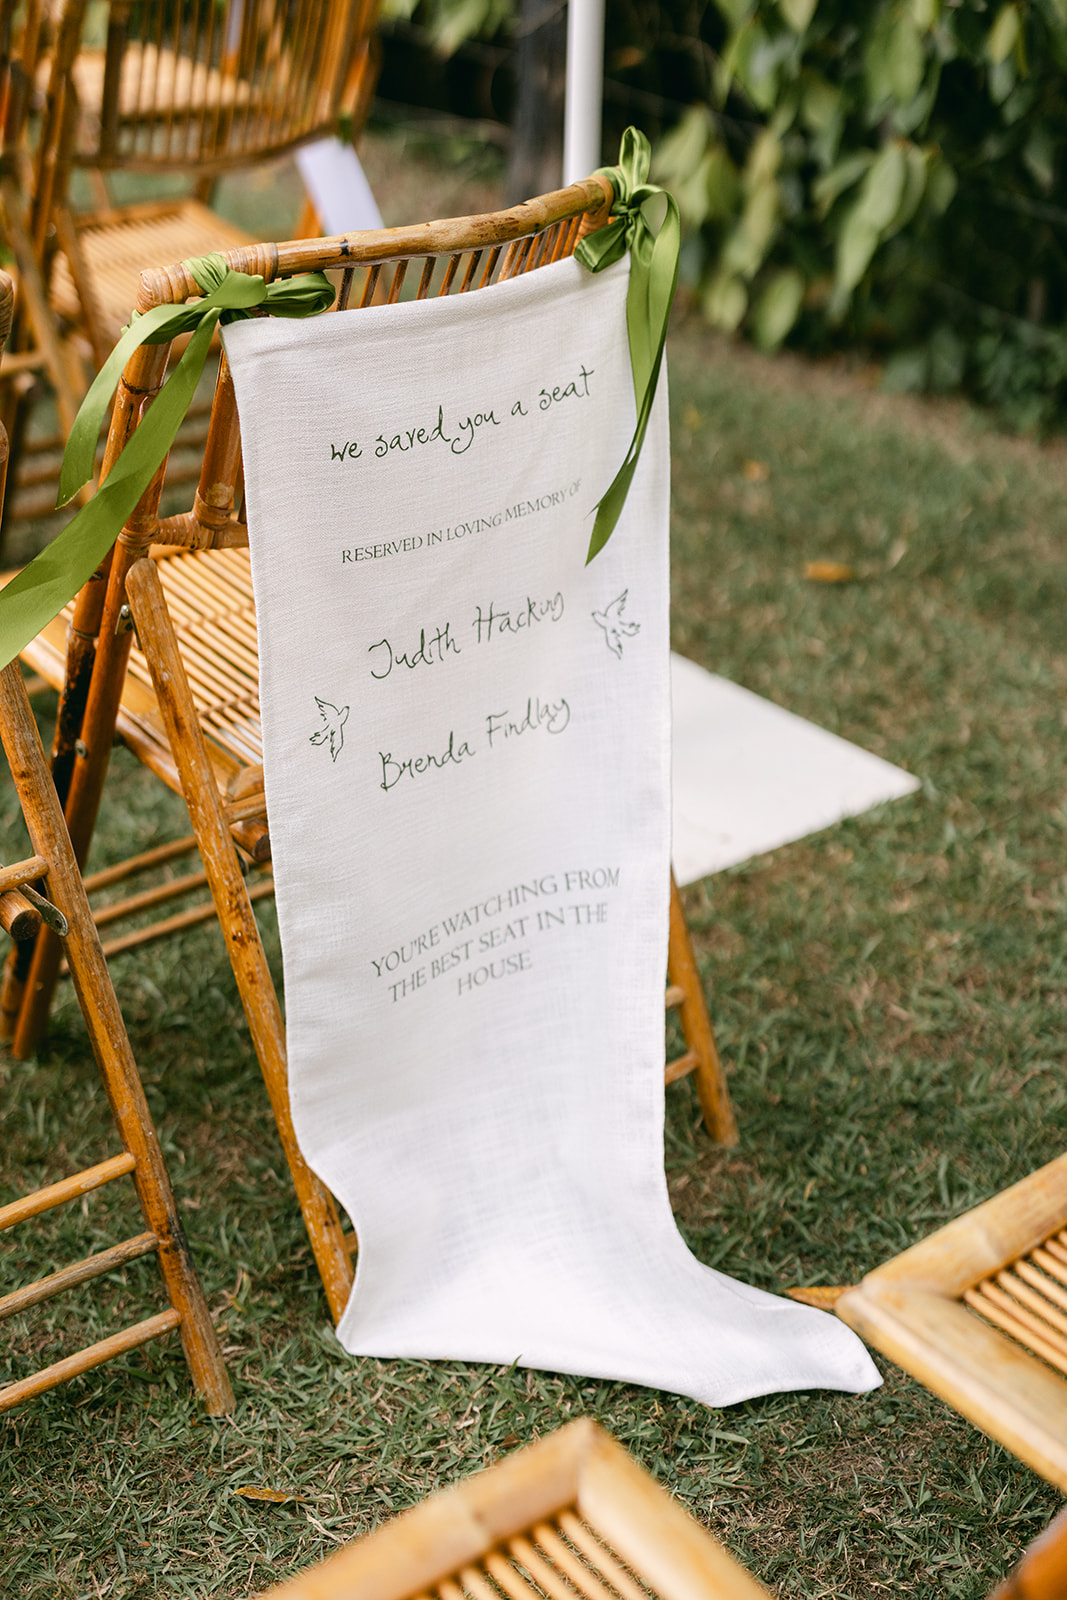 we saved you a seat
RESERVED IN LOVING MEMORY OF
Judith Hacking
Brenda Findlay
YOU'RE WATCHING FROM
THE BEST SEAT IN THE
HOUSE